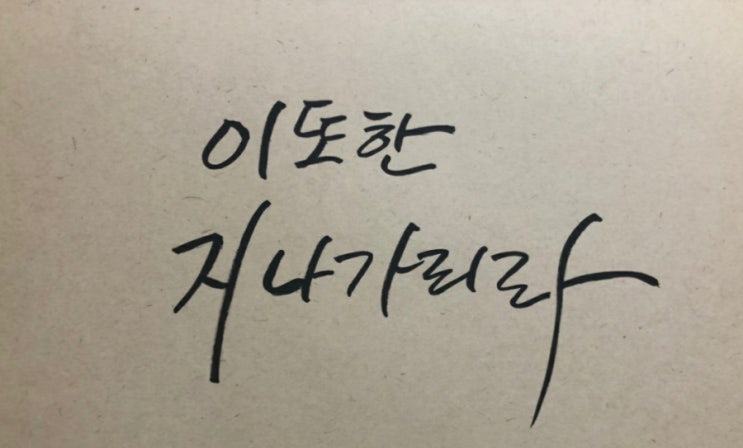 이또한
지나가리라